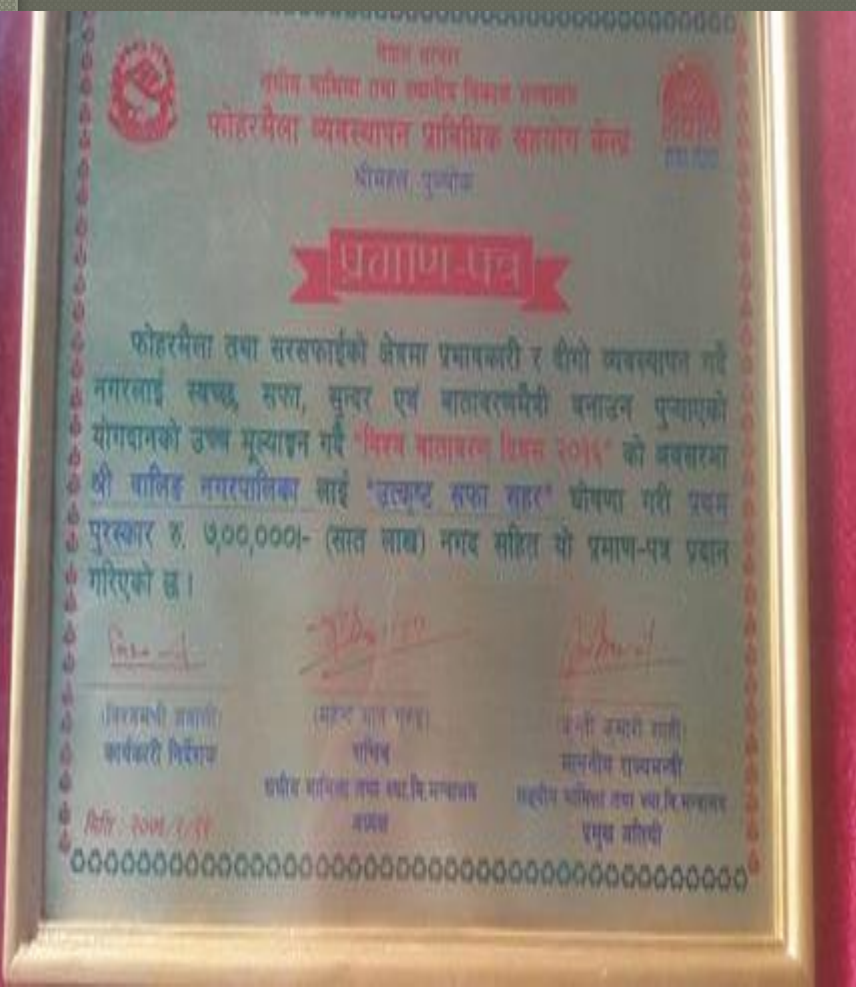 नेपाल सरकार
संघीय मामिला तथा स्थानीय विकास मन्त्रालय
फोहरमैला व्यवस्थापन प्राविधिक सहयोग केन्द्र
श्रीमहल, पुल्चोक
नेपाल
प्रमाण-पत्र
फोहरमैला तथा सरसफाईको क्षेत्रमा प्रभावकारी र दीगो व्यवस्थापन गर्दै
नगरलाई स्वच्छ, सफा, सुन्दर एवं वातावरणमैत्री बनाउन पुऱ्याएको
योगदानको उच्च मूल्याङ्कन गर्दै "विश्व वातावरण दिवस २०१६" को अवसरमा
श्री वालिङ नगरपालिका लाई "उत्कृष्ट सफा सहर" घोषणा गरी प्रथम
पुरस्कार रु. ७,००,०००।- (सात लाख) नगद सहित यो प्रमाण-पत्र प्रदान
गरिएको छ।
कार्यकारी निर्देशक
सचिव
माननीय राज्यमन्त्री
संघीय मामिला तथा स्था.वि.मन्त्रालय
सङ्घीय मामिला तथा स्था.वि.मन्त्रालय
मिति
प्रमुख अतिथी